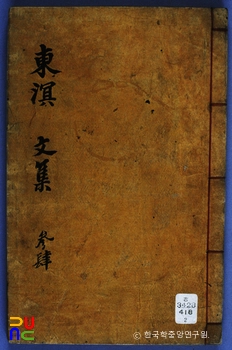 東溟 文集 參肆
3428
418
2
© 한국학중앙연구원